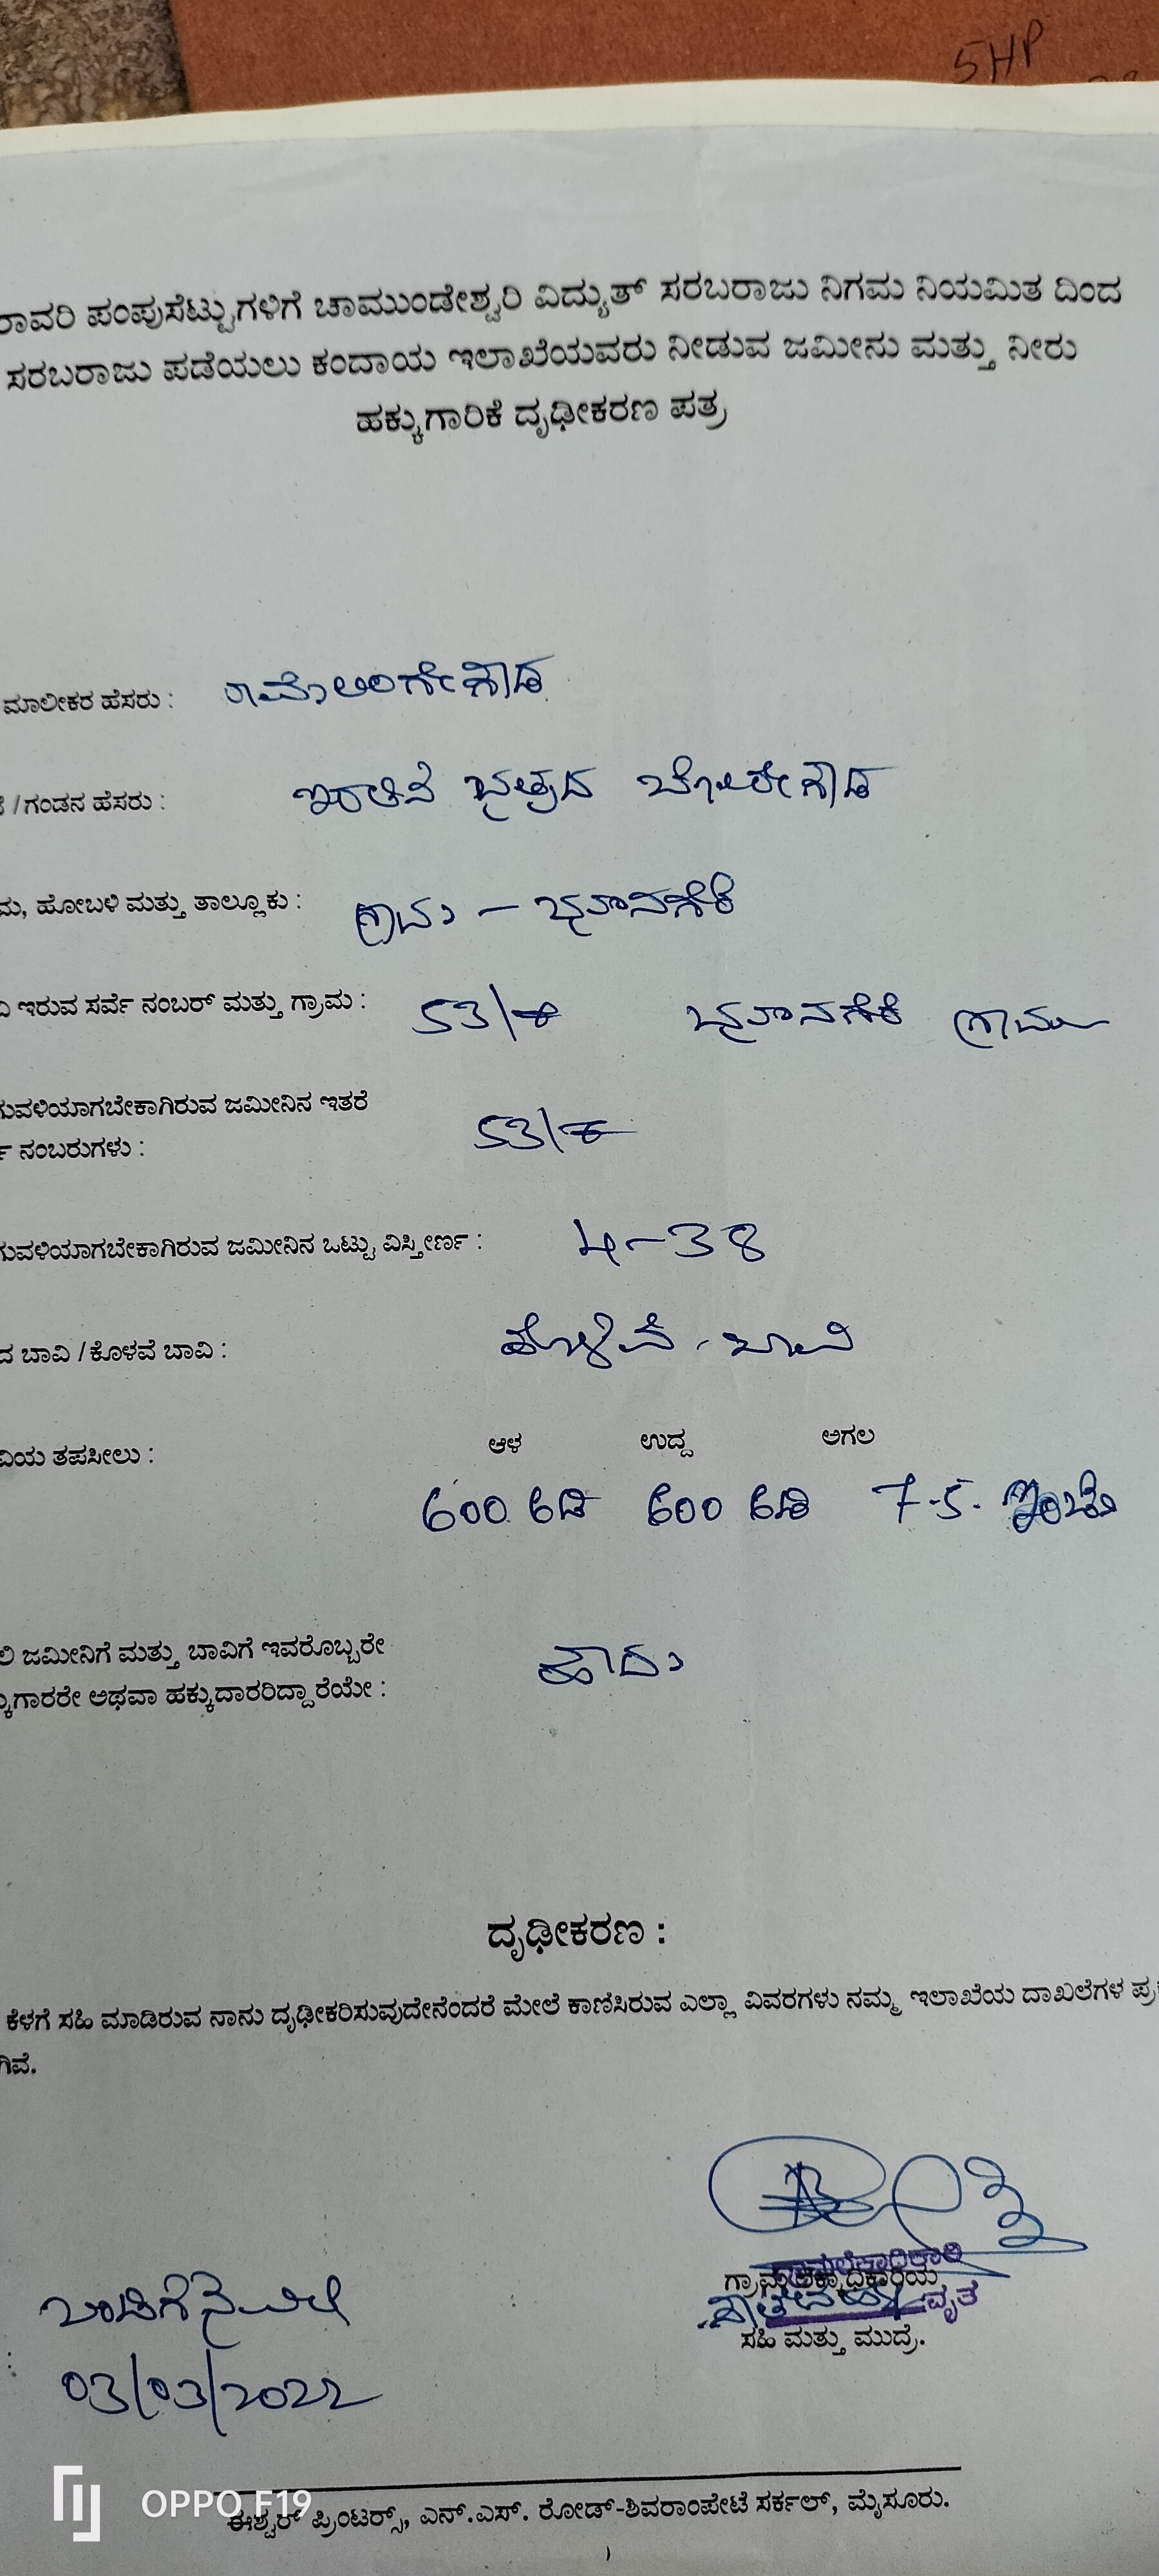 5HP
ರಾವರಿ ಪಂಪುಸೆಟ್ಟುಗಳಿಗೆ ಚಾಮುಂಡೇಶ್ವರಿ ವಿದ್ಯುತ್ ಸರಬರಾಜು ನಿಗಮ ನಿಯಮಿತ ದಿಂದ
ಸರಬರಾಜು ಪಡೆಯಲು ಕಂದಾಯ ಇಲಾಖೆಯವರು ನೀಡುವ ಜಮೀನು ಮತ್ತು ನೀರು
ಹಕ್ಕುಗಾರಿಕೆ ದೃಢೀಕರಣ ಪತ್ರ
ಮಾಲೀಕರ ಹೆಸರು : ರಾಮಲಿಂಗೇಗೌಡ
/ಗಂಡನ ಹೆಸರು : ಬೋರೇಗೌಡ
ಮ, ಹೋಬಳಿ ಮತ್ತು ತಾಲ್ಲೂಕು : ಗ್ರಾಮ -
ಇರುವ ಸರ್ವೆ ನಂಬರ್ ಮತ್ತು ಗ್ರಾಮ : 53/ ಗ್ರಾಮ
ಗುವಳಿಯಾಗಬೇಕಾಗಿರುವ ಜಮೀನಿನ ಇತರೆ
ನಂಬರುಗಳು : 53/
ಗುವಳಿಯಾಗಬೇಕಾಗಿರುವ ಜಮೀನಿನ ಒಟ್ಟು ವಿಸ್ತೀರ್ಣ : 4-38
ದ ಬಾವಿ /ಕೊಳವೆ ಬಾವಿ : ಕೊಳವೆ ಬಾವಿ
ವಿಯ ತಪಸೀಲು : ಆಳ ಉದ್ದ ಅಗಲ
600 ಅಡಿ 600 ಅಡಿ 7-5. ಇಂಚು
ಲಿ ಜಮೀನಿಗೆ ಮತ್ತು ಬಾವಿಗೆ ಇವರೊಬ್ಬರೇ
ಕ್ಕುಗಾರರೇ ಅಥವಾ ಹಕ್ಕುದಾರರಿದ್ದಾರೆಯೇ : ಹೌದು
ದೃಢೀಕರಣ :
ಕೆಳಗೆ ಸಹಿ ಮಾಡಿರುವ ನಾನು ದೃಢೀಕರಿಸುವುದೇನೆಂದರೆ ಮೇಲೆ ಕಾಣಿಸಿರುವ ಎಲ್ಲಾ ವಿವರಗಳು ನಮ್ಮ ಇಲಾಖೆಯ ದಾಖಲೆಗಳ ಪ್ರ
ಗಿವೆ.
ಗ್ರಾಮಲೆಕ್ಕಾಧಿಕಾರಿ
ಗ್ರಾಮ ಲೆಕ್ಕಾಧಿಕಾರಿಯ
ವೃತ್ತ
ಸಹಿ ಮತ್ತು ಮುದ್ರೆ.
03/03/2022
OPPO F19
ಈಶ್ವರ್ ಪ್ರಿಂಟರ್ಸ್, ಎನ್.ಎಸ್. ರೋಡ್-ಶಿವರಾಂಪೇಟೆ ಸರ್ಕಲ್, ಮೈಸೂರು.